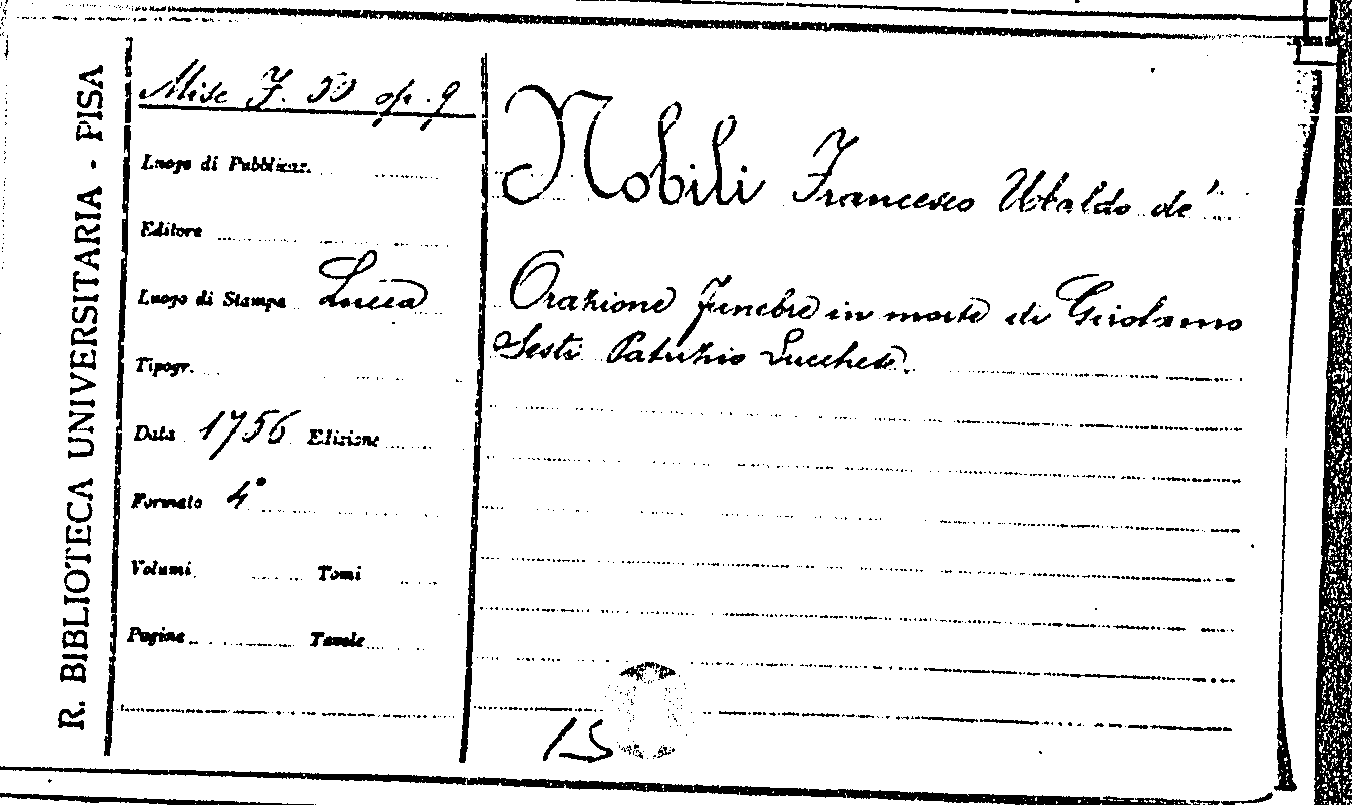 R. BIBLIOTECA UNIVERSITARIA - PISA
Misc F. 50 op. 9
Luogo di Pubblicaz.
Editore
Luogo di Stampa Lucca
Tipogr.
Data 1756 Edizione
Formato 4°
Volumi Tomi
Pagine Tavole
Nobili Francesco Ubaldo de'
Orazione funebre in morte di Girolamo
Sesti Patrizio Lucchese.
15